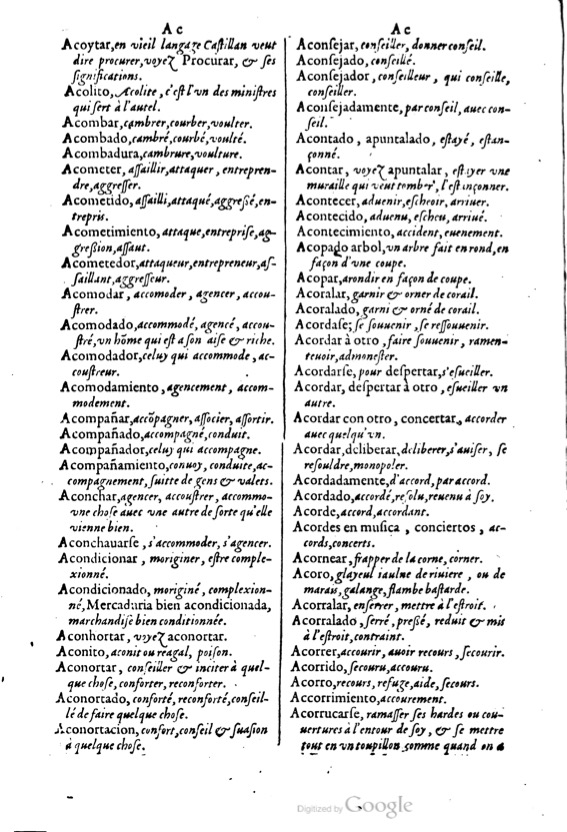 A c
Acoytar, en vieil langage Castillan veut
dire procurer, voyez Procurar, & ses
significations.
Acolito, Acolite, c'est l'vn des ministres
qui sert à l'autel.
Acombar, cambrer, courber, voulter.
Acombado, cambré, courbé, voulté.
Acombadura, cambrure, voulture.
Acometer, assaillir, attaquer, entrepren-
dre, aggresser.
Acometido, assailli, attaqué, aggressé, en-
trepris.
Acometimiento, attaque, entreprise, ag-
gression, assaut.
Acometedor, attaqueur, entrepreneur, as-
saillant, aggresseur.
Acomodar, accomoder, agencer, accou-
strer.
Acomodado, accommodé, agencé, accou-
stré, vn hõme qui est a son aise & riche.
Acomodador, celuy qui accommode, ac-
coustreur.
Acomodamiento, agencement, accom-
modement.
Acompañar, accõpagner, associer, assortir.
Acompañado, accompagné, conduit.
Acompañador, celuy qui accompagne.
Acompañamiento, conuoy, conduite, ac-
compagnement, suitte de gens & valets.
Aconchar, agencer, accoustrer, accommo-
vne chose auec vne autre de sorte qu'elle
vienne bien.
Aconchauarse, s'accommoder, s'agencer.
Acondicionar, moriginer, estre comple-
xionné.
Acondicionado, moriginé, complexion-
né, Mercaduria bien acondicionada,
marchandise bien conditionnée.
Aconhortar, voyez aconortar.
Aconito, aconit ou reagal, poison.
Aconortar, conseiller & inciter à quel-
que chose, conforter, reconforter.
Aconortado, conforté, reconforté, conseil-
lé de faire quelque chose.
Aconortacion, confort, conseil & suasion
à quelque chose.
A c
Aconsejar, conseiller, donner conseil.
Aconsejado, conseillé.
Aconsejador, conseilleur, qui conseille,
conseiller.
Aconsejadamente, par conseil, auec con-
seil.
Acontado, apuntalado, estayé, estan-
çonné.
Acontar, voyez apuntalar, estayer vne
muraille qui veut tomber, l'estançonner.
Acontecer, aduenir, escheoir, arriuer.
Acontecido, aduenu, escheu, arriué.
Acontecimiento, accident, euenement.
Acopado arbol, vn arbre fait en rond, en
façon d'vne coupe.
Acopar, arondir en façon de coupe.
Acoralar, garnir & orner de corail.
Acoralado, garni & orné de corail.
Acordase; se souuenir, se ressouuenir.
Acordar à otro, faire souuenir, ramen-
teuoir, admonester.
Acordarse, pour despertar, s'esueiller.
Acordar, despertar à otro, esueiller vn
autre.
Acordar con otro, concertar, accorder
auec quelqu'vn.
Acordar, deliberar, deliberer, s'auiser, se
resouldre, monopoler.
Acordadamente, d'accord, par accord.
Acordado, accordé, resolu, reuenu à soy.
Acorde, accord, accordant.
Acordes en musica, conciertos, ac-
cords, concerts.
Acornear, frapper de la corne, corner.
Acoro, glayeul iaulne de riuiere, ou de
marass, galange, flambe bastarde.
Acorralar, enserrer, mettre à l'estroit.
Acorralado, serré, pressé, reduit & mis
à l'estroit, contraint.
Acorrer, accourir, auoir recours, secourir.
Acorrido, secouru, accouru.
Acorro, recours, refuge, aide, secours.
Accorrimiento, accourement.
Acorrucarse, ramasser ses hardes ou cou-
uertures à l'entour de soy, & se mettre
tout en vn toupillon comme quand on a
Digitized by Google